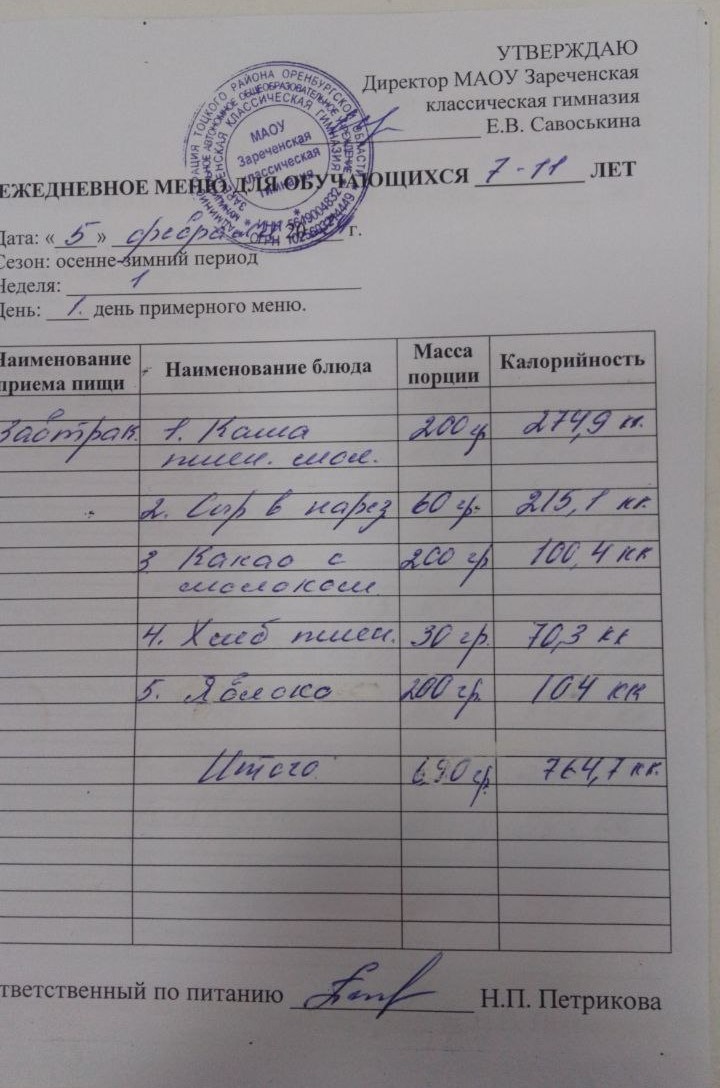 УТВЕРЖДАЮ
Директор МАОУ Зареченская
классическая гимназия
Е.В. Савоськина
МАОУ
Зареченская
классическая
гимназия
ЕЖЕДНЕВНОЕ МЕНЮ ДЛЯ ОБУЧАЮЩИХСЯ 7-11 ЛЕТ
Дата: «5» февраля 20 г.
Сезон: осенне-зимний период
Неделя: 1
День: 1. день примерного меню.
Наименование приема пищи Наименование блюда Масса порции Калорийность
Завтрак 1. Каша 200 гр 274,9 кк.
пшен. мол.
2. Сыр в нарез 60 гр. 215,1 кк.
3 Какао с 200 гр 100,4 кк
молоком
4. Хлеб пшен. 30 гр. 70,3 кк
5. Яблоко 200 гр. 104 кк
Итого 690 гр. 764,7 кк.
тветственный по питанию Н.П. Петрикова